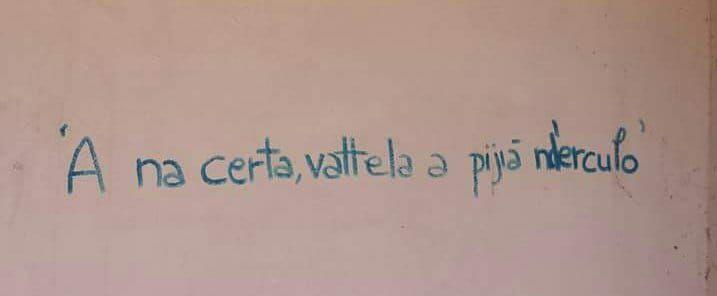 'A na certa, vattela a pijià nd'erculo'